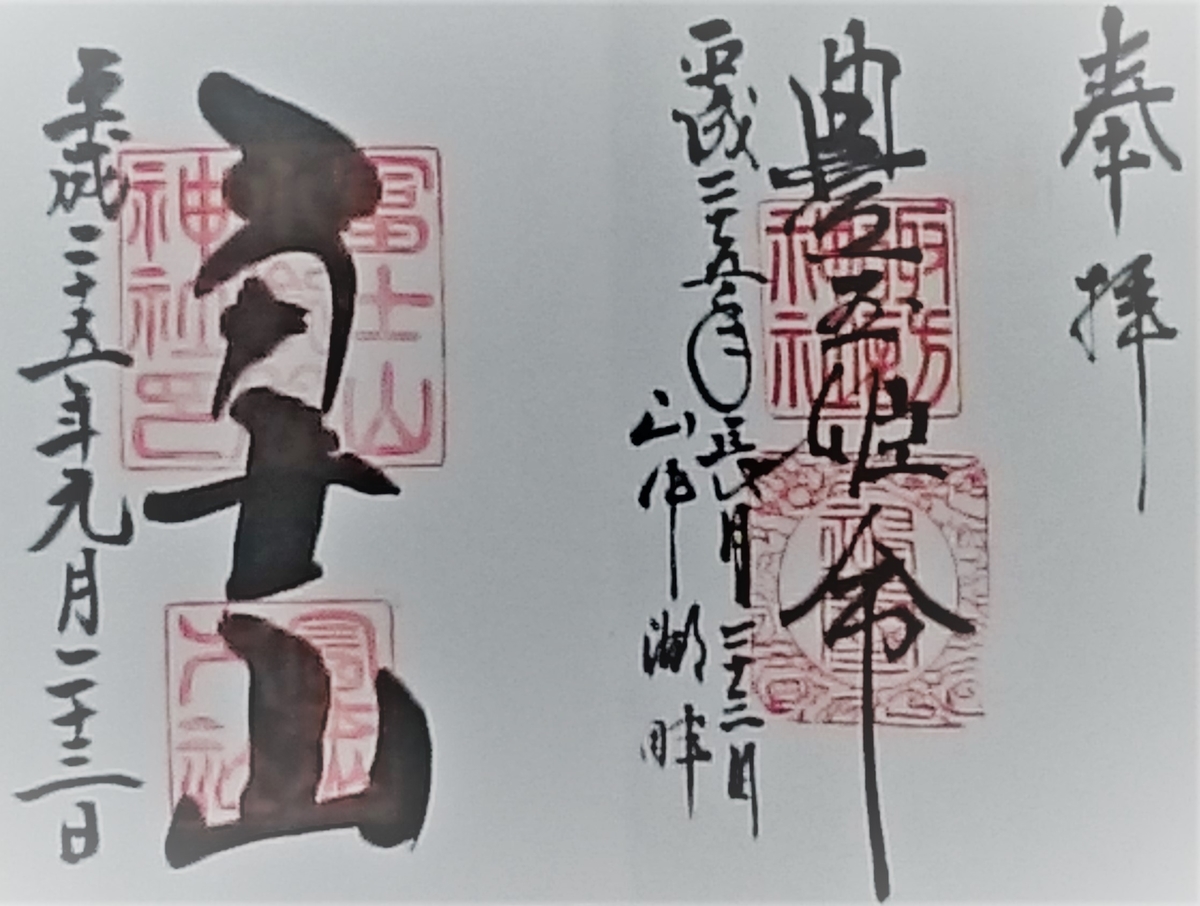 奉拝
豊玉姫命
平成二十五年正月二十三日
山中湖畔
富士山
平成二十五年元月二十三日
富士山
神社印